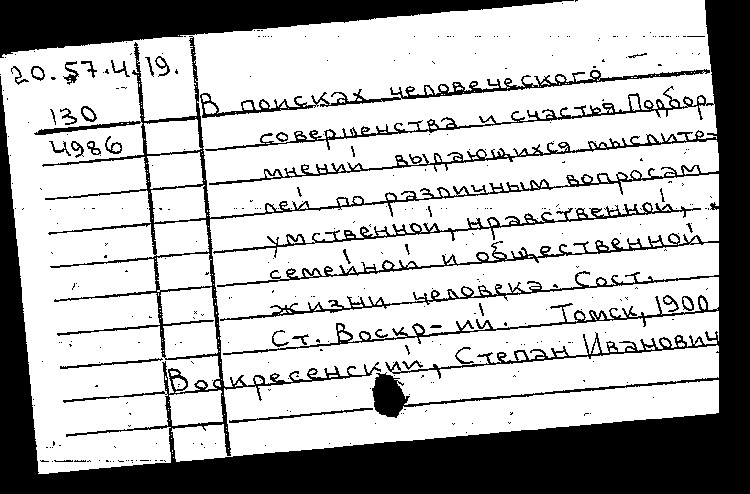 20.57.4.19.
130
4986
В поисках человеческого
совершенства и счастья. Подбор
мнений выдающихся мыслите-
лей по различным вопросам
умственной, нравственной,
семейной и общественной
жизни человека. Сост.
Ст. Воскр-ий. Томск, 1900
Воскресенский, Степан Иванович